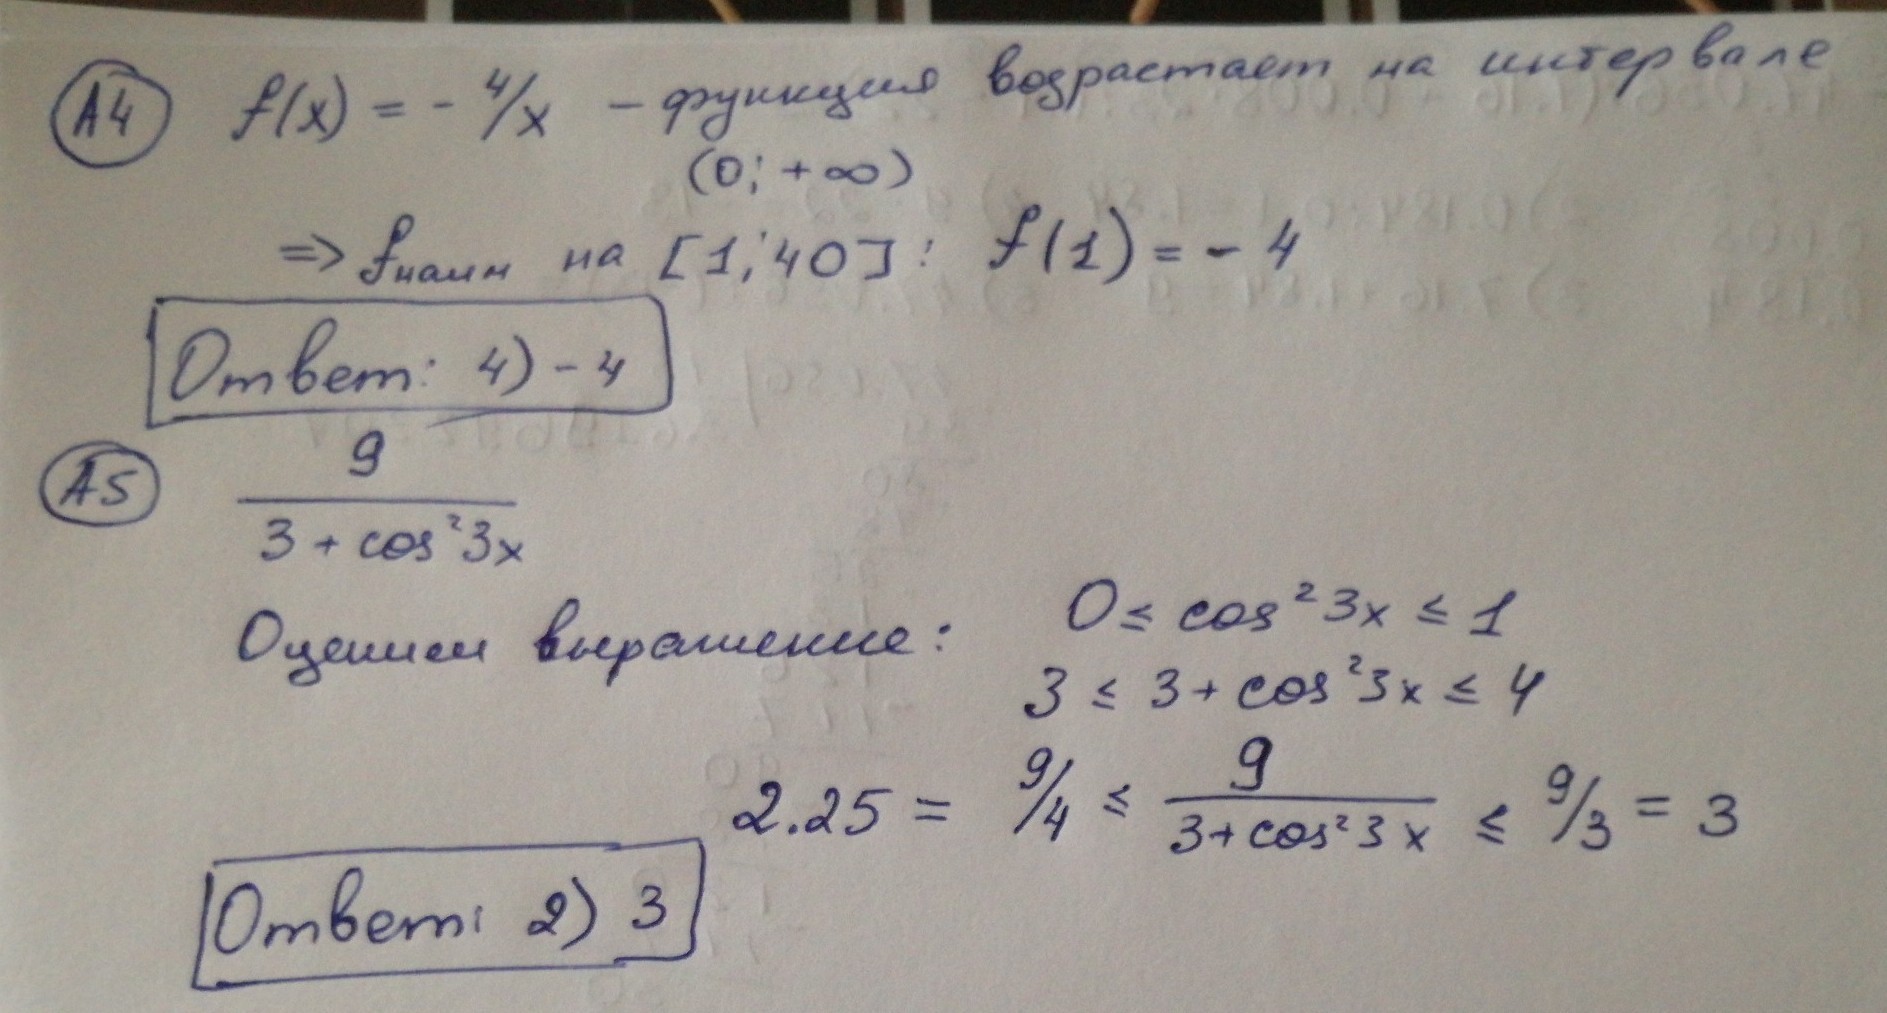 А4 f(x) = - 4/x - функция возрастает на интервале
(0; +∞)
=> fнаим на [1; 40]: f(1) = - 4
Ответ: 4) - 4
А5 9
3 + cos²3x
Оценим выражение: 0 ≤ cos²3x ≤ 1
3 ≤ 3 + cos²3x ≤ 4
2.25 = 9/4 ≤ 9/(3+cos²3x) ≤ 9/3 = 3
Ответ: 2) 3